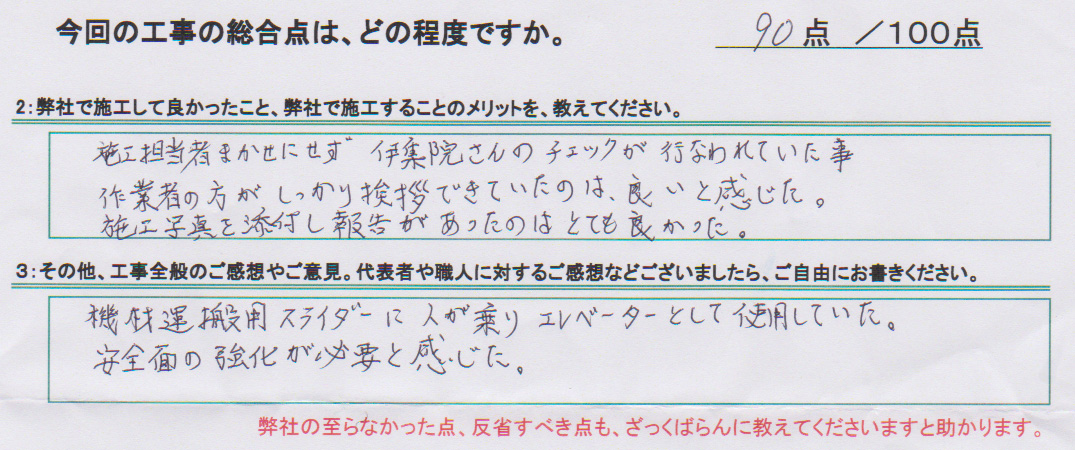 今回の工事の総合点は、どの程度ですか。 90 点 ／100点
2：弊社で施工して良かったこと、弊社で施工することのメリットを、教えてください。
施工担当者まかせにせず 伊集院さんのチェックが 行なわれていた事
作業者の方が しっかり挨拶できていたのは、良いと感じた。
施工写真を添付し報告があったのはとても良かった。
3：その他、工事全般のご感想やご意見。代表者や職人に対するご感想などございましたら、ご自由にお書きください。
機材運搬用スライダーに人が乗りエレベーターとして使用していた。
安全面の強化が必要と感じた。
弊社の至らなかった点、反省すべき点も、ざっくばらんに教えてくださいますと助かります。